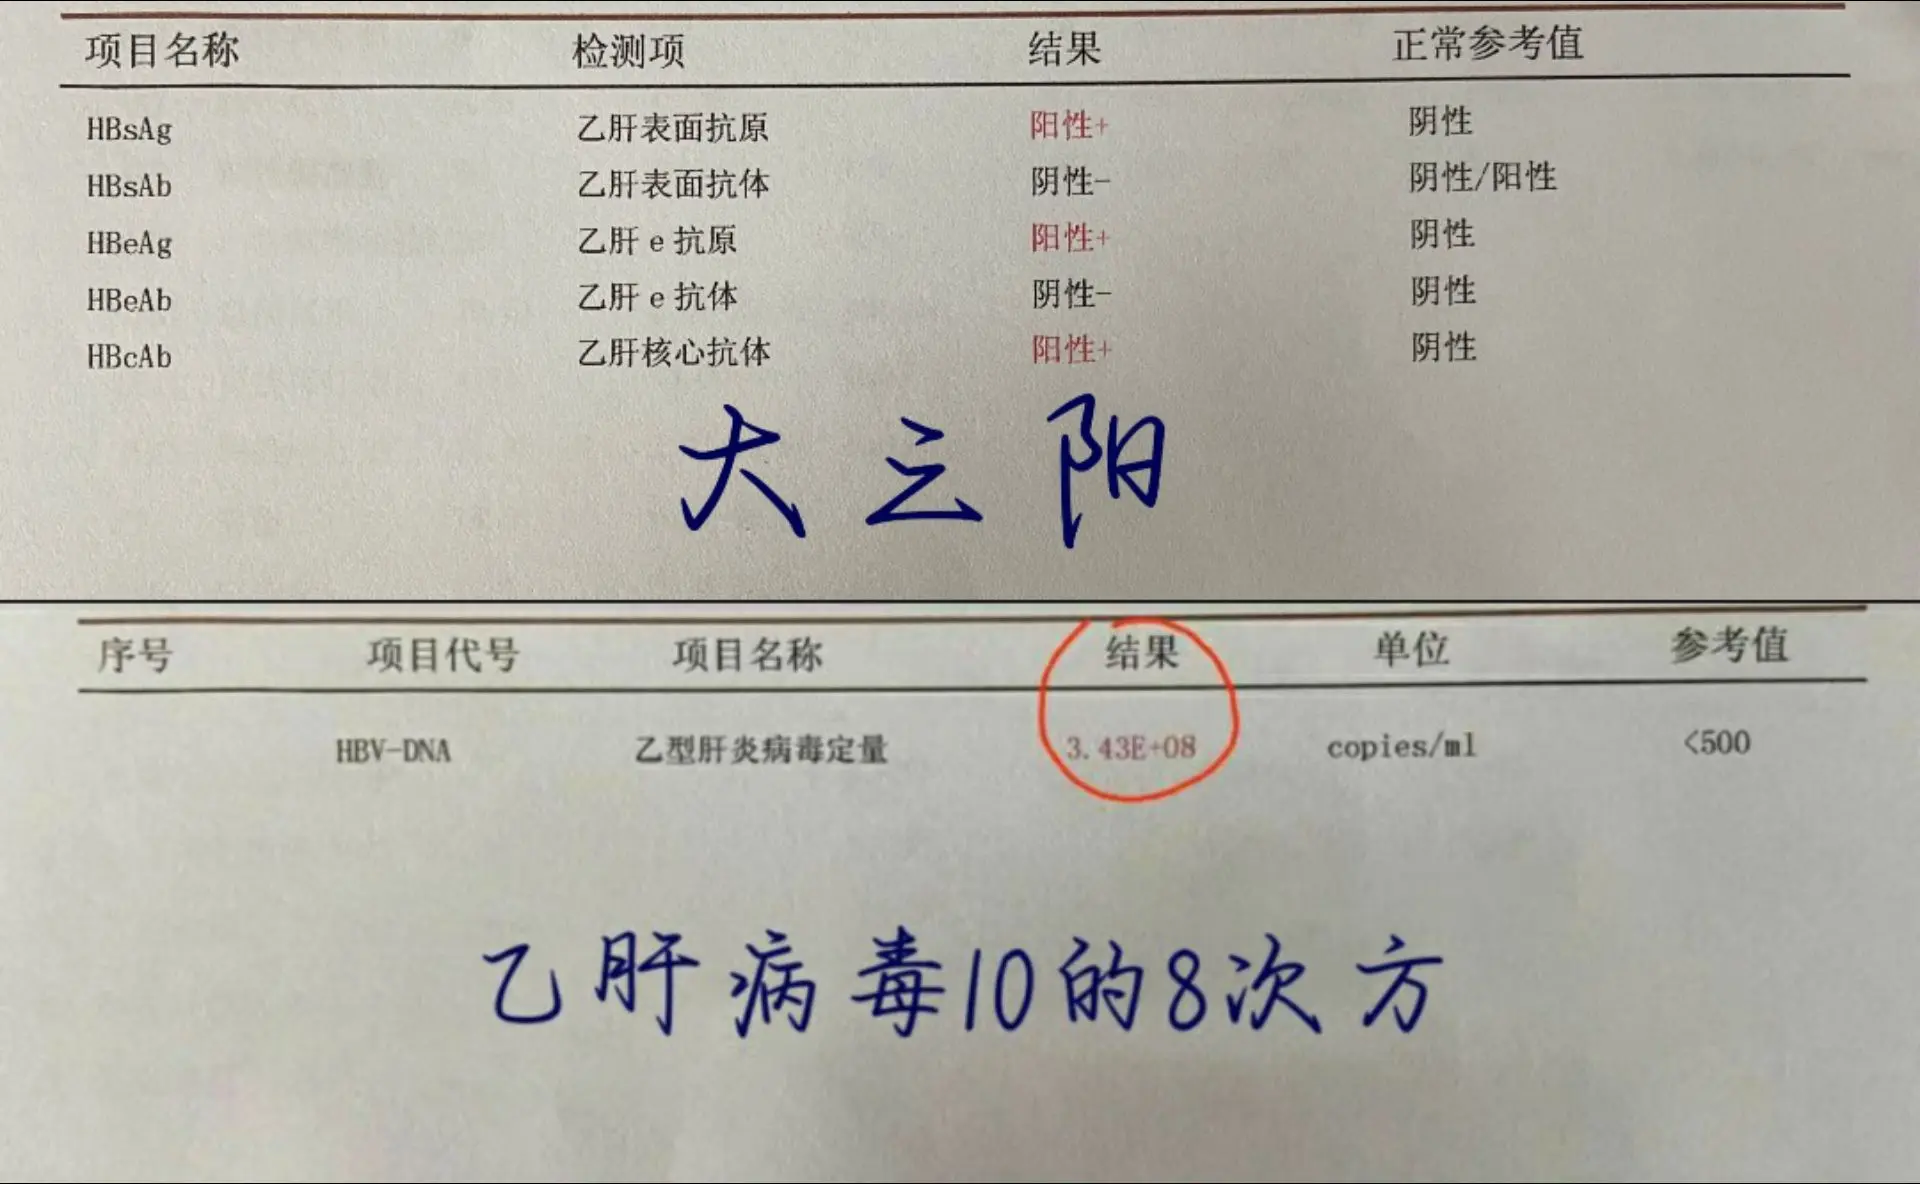 项目名称 检测项 结果 正常参考值
HBsAg 乙肝表面抗原 阳性+ 阴性
HBsAb 乙肝表面抗体 阴性- 阴性/阳性
HBeAg 乙肝e抗原 阳性+ 阴性
HBeAb 乙肝e抗体 阴性- 阴性
HBcAb 乙肝核心抗体 阳性+ 阴性
大三阳
序号 项目代号 项目名称 结果 单位 参考值
HBV-DNA 乙型肝炎病毒定量 3.43E+08 copies/ml <500
乙肝病毒10的8次方